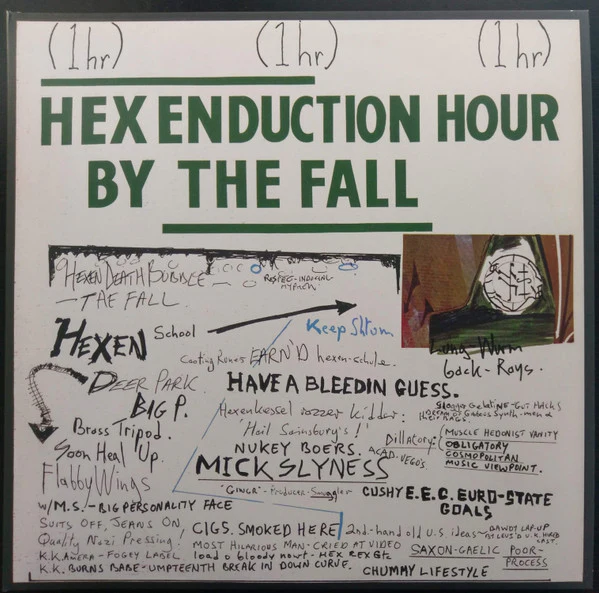 (1hr) (1hr) (1hr)
HEX ENDUCTION HOUR
BY THE FALL
HEXEN DEATH BUBBLE
— THE FALL.
HEXEN School
Keep Shtum
Casting Runes EARN'D hexen-schule.
Lung Wurm
back-Rays.
DEER PARK
HAVE A BLEEDIN GUESS.
BIG P.
Hexenkessel rozzer kidder:
Brass Tripod.
'Hail Sainsbury's!'
Dillatory:
MUSCLE HEDONIST VANITY
OBLIGATORY
COSMOPOLITAN
MUSIC VIEWPOINT.
Soon Heal Up.
NUKEY BOERS.
ACAD-VEGO'S
Flabby Wings
MICK SLYNESS
'GINGR' - Producer - Smuggler
CUSHY E.E.C. EURO-STATE
GOALS
W/M.S. - BIG PERSONALITY FACE
SUITS OFF, JEANS ON,
CIGS. SMOKED HERE
2nd-hand old U.S. ideas
Quality Nazi Pressing!
MOST HILARIOUS MAN - CRIED AT VIDEO
SAXON-GAELIC POOR-
PROCESS
FOGEY LABEL
load o bloody nowt - HEX REX Etc
K.K. BURNS BABE - UMPTEENTH BREAK IN DOWN CURVE.
CHUMMY LIFESTYLE